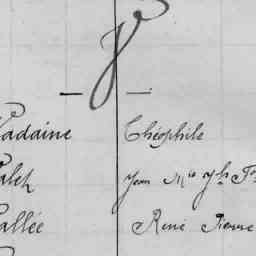 V
Vadaine Théophile
Valet Jean Mie Jh Fs
Vallée René Pierre